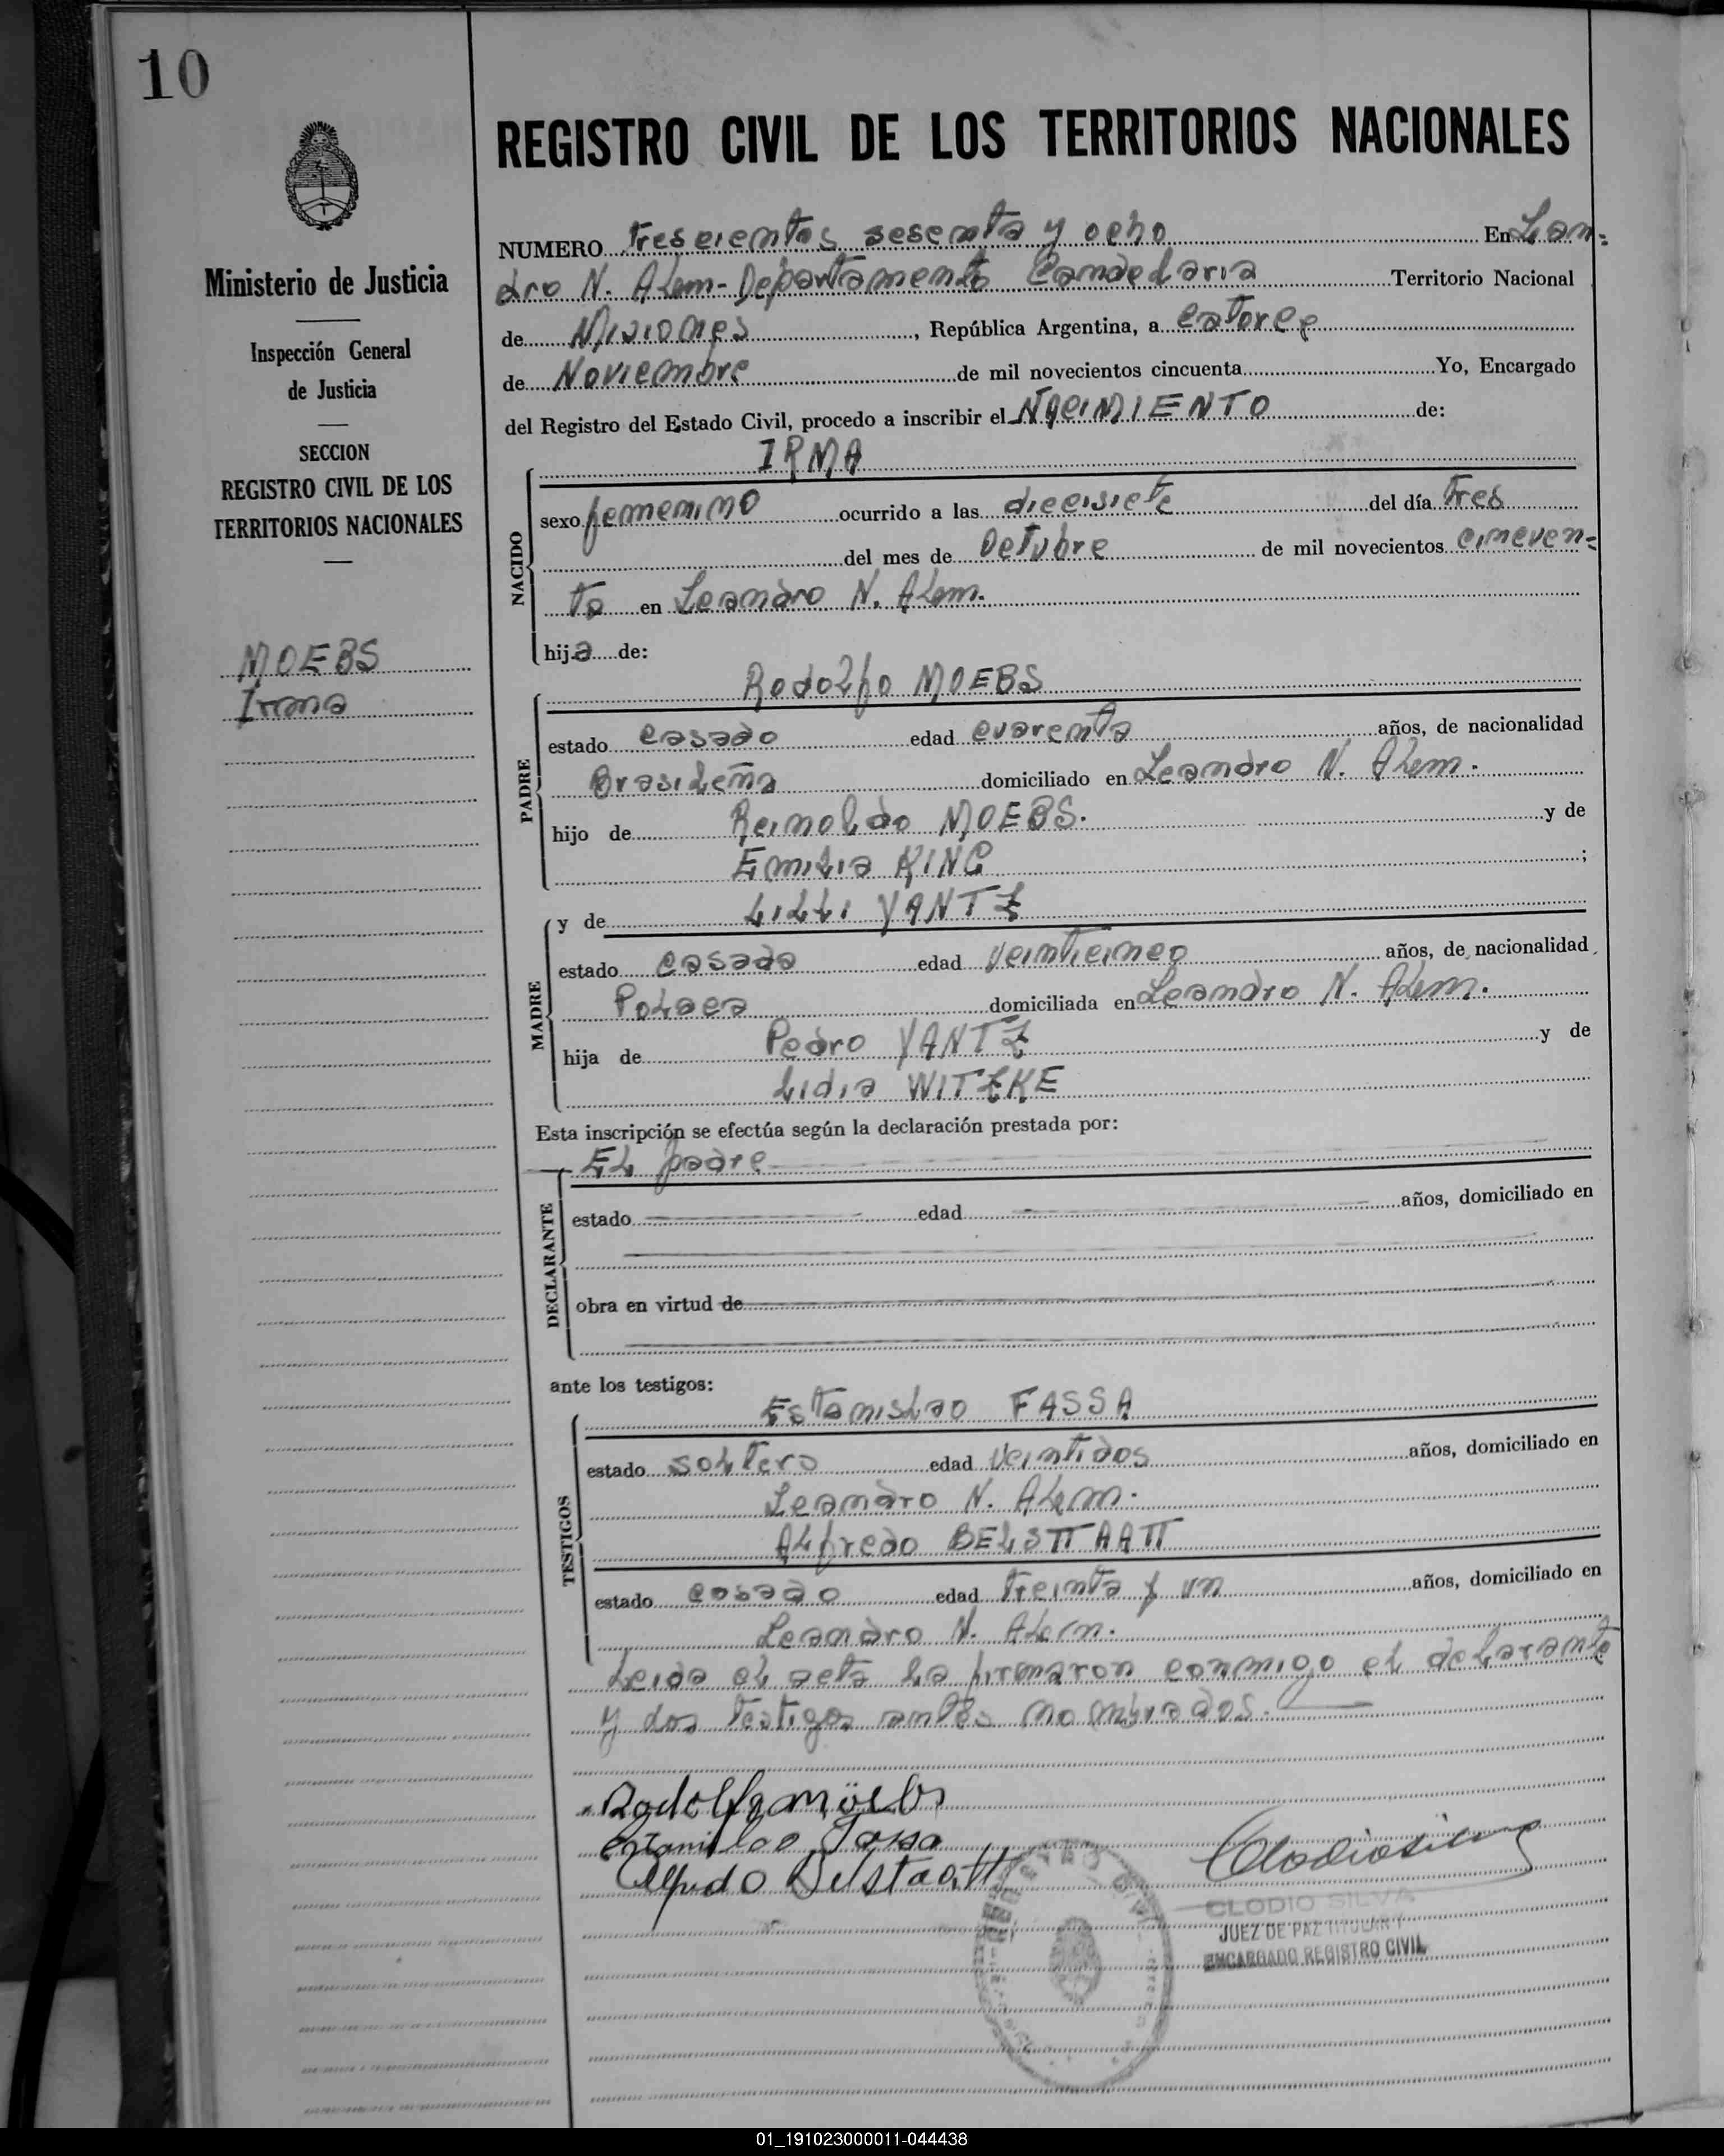 10
REGISTRO CIVIL DE LOS TERRITORIOS NACIONALES
Ministerio de Justicia
Inspección General
de Justicia
SECCION
REGISTRO CIVIL DE LOS
TERRITORIOS NACIONALES
MOEBS
Irma
NUMERO trescientos sesenta y ocho En Lean=
dro N. Alem-Departamento Candelaria Territorio Nacional
de Misiones, República Argentina, a catorce
de Noviembre de mil novecientos cincuenta Yo, Encargado
del Registro del Estado Civil, procedo a inscribir el NACIMIENTO de:
IRMA
NACIDO
sexo femenino ocurrido a las diecisiete del día tres
del mes de Octubre de mil novecientos cincuen=
ta en Leandro N. Alem.
hija de:
Rodolfo MOEBS
PADRE
estado casado edad cuarenta años, de nacionalidad
Brasileña domiciliado en Leandro N. Alem.
hijo de Reinoldo MOEBS. y de
Emilia KING ;
y de Lilli YANTZ
MADRE
estado casada edad veinticinco años, de nacionalidad
Polaca domiciliada en Leandro N. Alem.
hija de Pedro YANTZ y de
Lidia WITZKE
Esta inscripción se efectúa según la declaración prestada por:
El padre
DECLARANTE
estado edad años, domiciliado en
obra en virtud de
ante los testigos:
Estanislao FASSA
TESTIGOS
estado soltero edad veintidos años, domiciliado en
Leandro N. Alem.
Alfredo BELSTTAATT
estado casado edad treinta y un años, domiciliado en
Leandro N. Alem.
Leida el acta la firmaron conmigo el declarante
y dos testigos antes nombrados.
Rodolfo Möebs
Estanislao Fassa
Alfredo Belstaatt
Clodio Silva
CLODIO SILVA
JUEZ DE PAZ TITULAR Y
ENCARGADO REGISTRO CIVIL
01_191023000011-044438